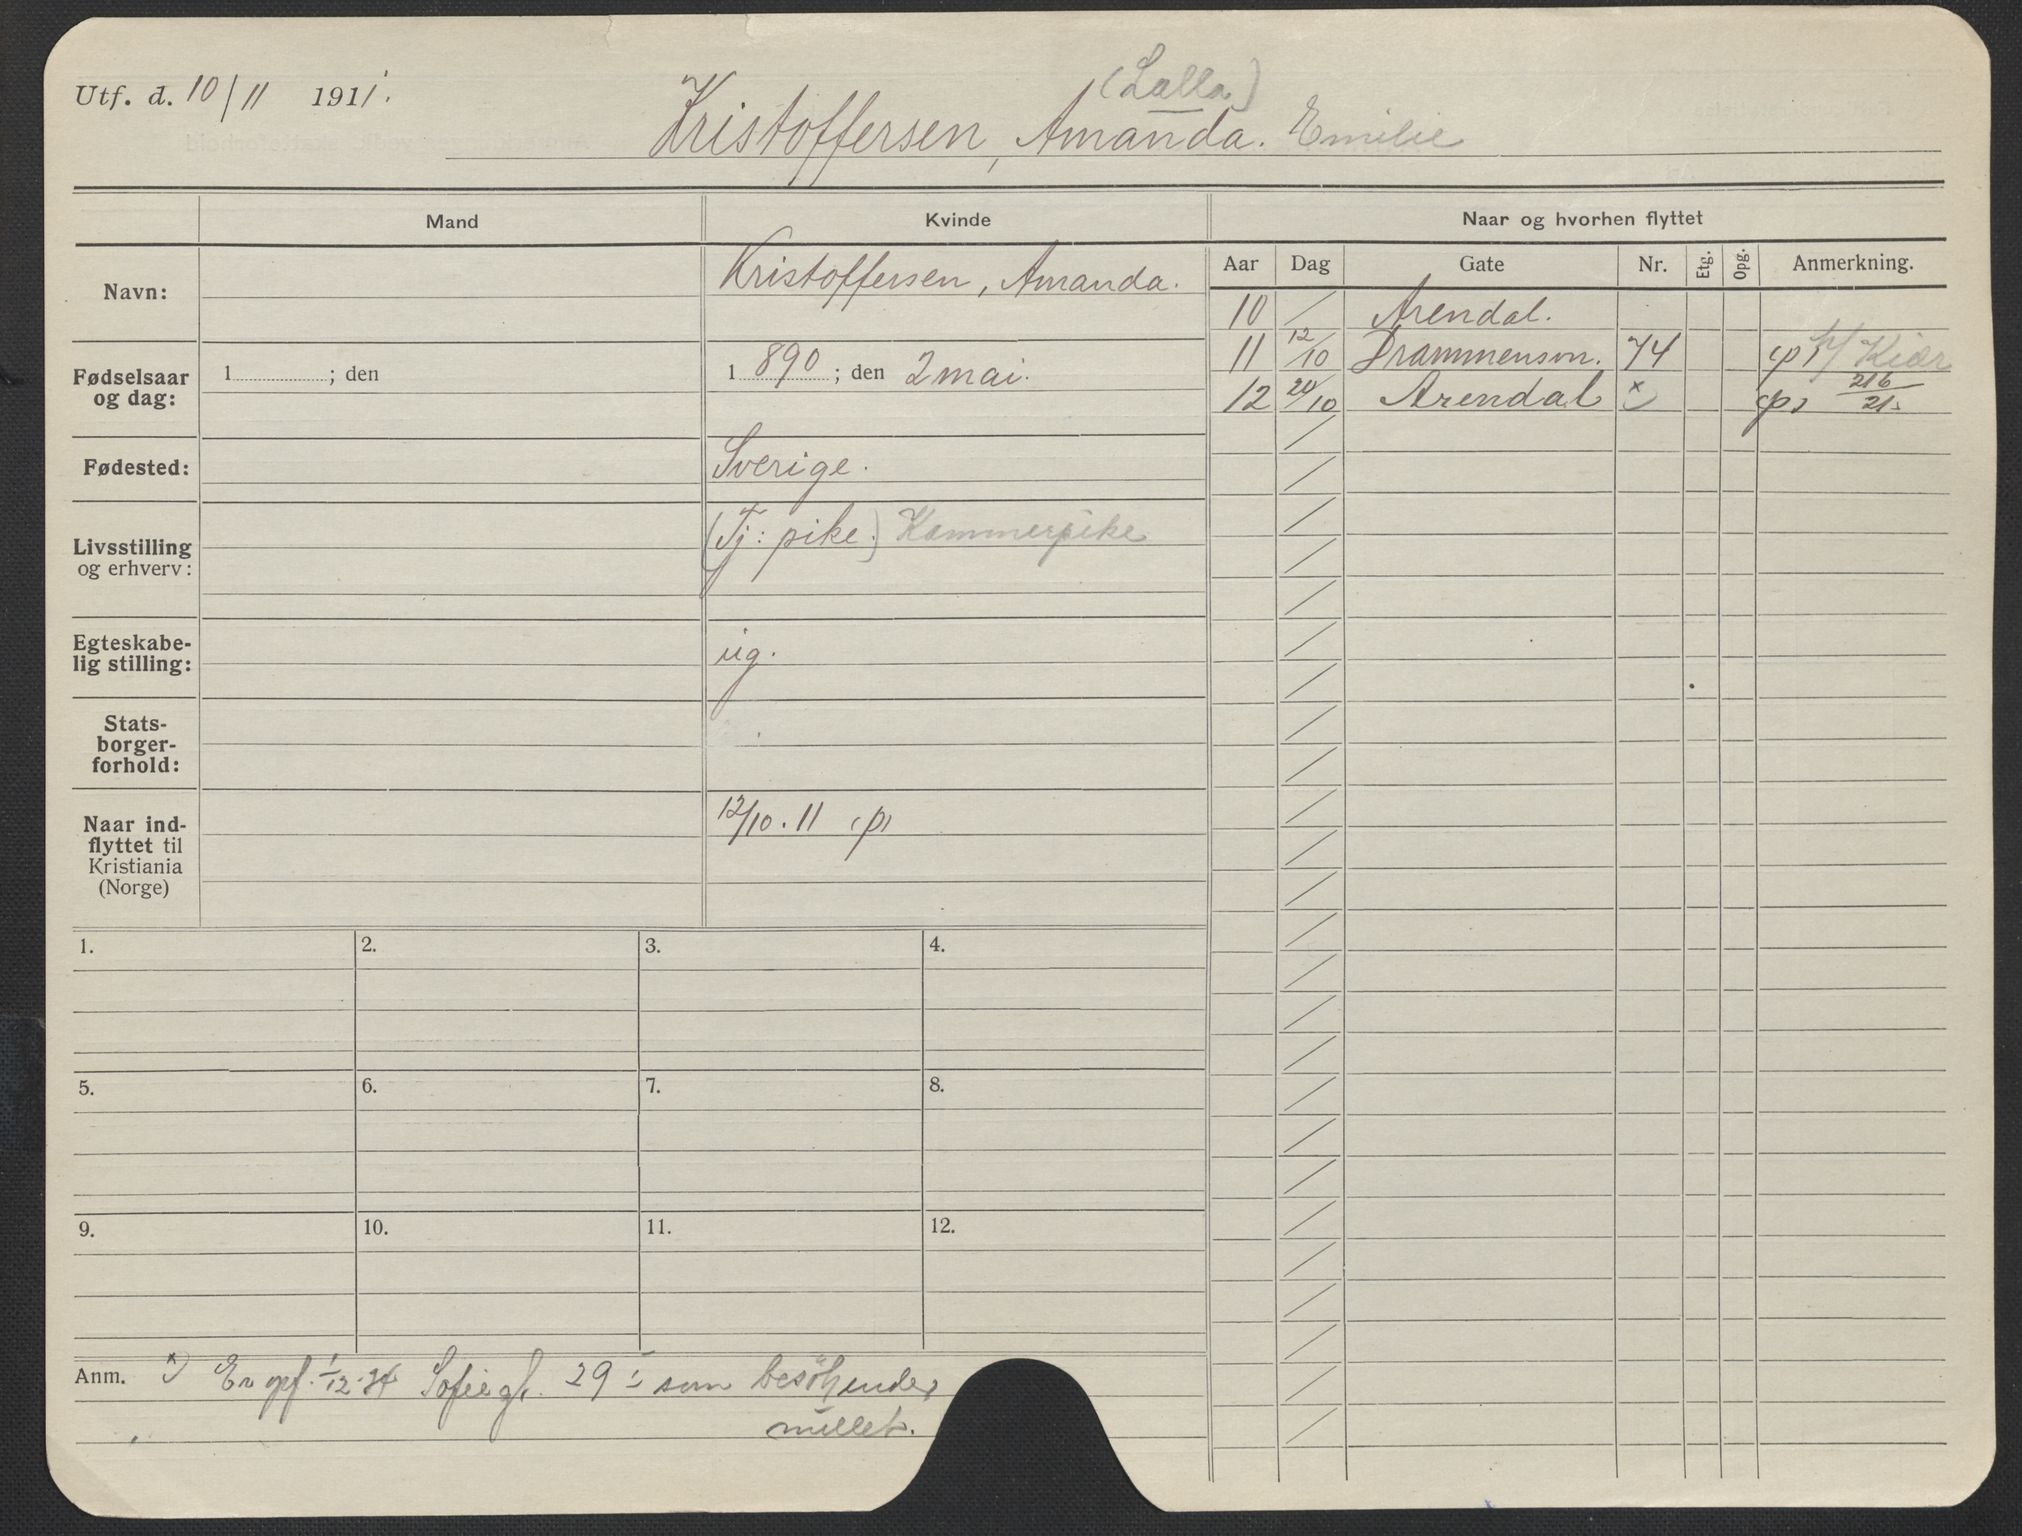 Utf. d. 10/11 1911.
(Lalla)
Kristoffersen, Amanda. Emilie
Mand
Kvinde
Naar og hvorhen flyttet
Navn:
Kristoffersen, Amanda.
Fødselsaar
og dag:
1 ; den
1 890 ; den 2 mai.
Fødested:
Sverige.
Livsstilling
og erhverv:
(Tj: pike.) Kammerpike
Egteskabe-
lig stilling:
ug.
Stats-
borger-
forhold:
Naar ind-
flyttet til
Kristiania
(Norge)
12/10. 11 (p)
Aar Dag Gate Nr. Etg. Opg. Anmerkning.
10 / Arendal.
11 12/10 Drammensvn. 74 (p) Kiær
12 20/10 Arendal x) (p) 216/21
1. 2. 3. 4.
5. 6. 7. 8.
9. 10. 11. 12.
Anm. x) Er opf. 1/12-24 Sofiegt. 29 som besökende,
nullet.